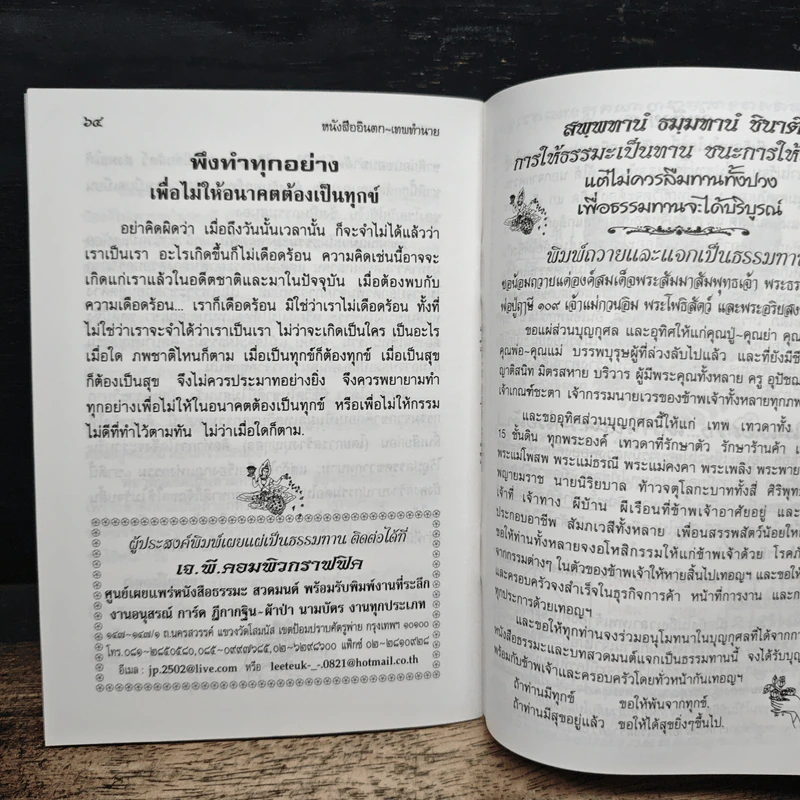 ๖๔
หนังสืออินตก~เทพทำนาย
พึงทำทุกอย่าง
เพื่อไม่ให้อนาคตต้องเป็นทุกข์
อย่าคิดผิดว่า เมื่อถึงวันนั้นเวลานั้น ก็จะจำไม่ได้แล้วว่า
เราเป็นเรา อะไรเกิดขึ้นก็ไม่เดือดร้อน ความคิดเช่นนี้อาจจะ
เกิดแก่เราแล้วในอดีตชาติและมาในปัจจุบัน เมื่อต้องพบกับ
ความเดือดร้อน... เราก็เดือดร้อน มิใช่ว่าเราไม่เดือดร้อน ทั้งที่
ไม่ใช่ว่าเราจะจำได้ว่าเราเป็นเรา ไม่ว่าจะเกิดเป็นใคร เป็นอะไร
เมื่อใด ภพชาติไหนก็ตาม เมื่อเป็นทุกข์ก็ต้องทุกข์ เมื่อเป็นสุข
ก็ต้องเป็นสุข จึงไม่ควรประมาทอย่างยิ่ง จึงควรพยายามทำ
ทุกอย่างเพื่อไม่ให้ในอนาคตต้องเป็นทุกข์ หรือเพื่อไม่ให้กรรม
ไม่ดีที่ทำไว้ตามทัน ไม่ว่าเมื่อใดก็ตาม.
ผู้ประสงค์พิมพ์เผยแผ่เป็นธรรมทาน ติดต่อได้ที่
เจ.พี.คอมพิวกราฟฟิค
ศูนย์เผยแพร่หนังสือธรรมะ สวดมนต์ พร้อมรับพิมพ์งานที่ระลึก
งานอนุสรณ์ การ์ด ฎีกากฐิน-ผ้าป่า นามบัตร งานทุกประเภท
๑๔๗-๑๔๗/๑ ถ.นครสวรรค์ แขวงวัดโสมนัส เขตป้อมปราบศัตรูพ่าย กรุงเทพฯ ๑๐๑๐๐
โทร.๐๘๑-๒๘๕๐๕๘๐,๐๘๕-๐๙๙๗๖๘๕,๐๒-๖๒๙๘๐๐๐ แฟ็กซ์ ๐๒-๒๘๑๐๙๒๘
อีเมล : jp.2502@live.com หรือ leeteuk-_-.0821@hotmail.co.th
สพฺพทานํ ธมฺมทานํ ชินาติ
การให้ธรรมะเป็นทาน ชนะการให้
แต่ไม่ควรลืมทานทั้งปวง
เพื่อธรรมทานจะได้บริบูรณ์
พิมพ์ถวายและแจกเป็นธรรมทาน
ขอน้อมถวายแด่องค์สมเด็จพระสัมมาสัมพุทธเจ้า พระธรร
พ่อปู่ฤาษี ๑๐๙ เจ้าแม่กวนอิม พระโพธิสัตว์ และพระอริยสง
ขอแผ่ส่วนบุญกุศล และอุทิศให้แก่คุณปู่-คุณย่า คุณ
คุณพ่อ-คุณแม่ บรรพบุรุษผู้ที่ล่วงลับไปแล้ว และที่ยังมีชี
ญาติสนิท มิตรสหาย บริวาร ผู้มีพระคุณทั้งหลาย ครู อุปัชฌ
เจ้าเกณฑ์ชะตา เจ้ากรรมนายเวรของข้าพเจ้าทั้งหลายทุกภพ
และขออุทิศส่วนบุญกุศลนี้ให้แก่ เทพ เทวดาทั้ง
15 ชั้นดิน ทุกพระองค์ เทวดาที่รักษาตัว รักษาร้านค้า เ
พระแม่โพสพ พระแม่ธรณี พระแม่คงคา พระเพลิง พระพาย
พญายมราช นายนิริยบาล ท้าวจตุโลกะบาททั้งสี่ ศิริพุท
เจ้าที่ เจ้าทาง ผีบ้าน ผีเรือนที่ข้าพเจ้าอาศัยอยู่ และ
ประกอบอาชีพ สัมภเวสีทั้งหลาย เพื่อนสรรพสัตว์น้อยให
ขอให้ท่านทั้งหลายจงอโหสิกรรมให้แก่ข้าพเจ้าด้วย โรคภั
จากกรรมต่างๆ ในตัวของข้าพเจ้าให้หายสิ้นไปเทอญฯ และขอให้
และครอบครัวจงสำเร็จในธุรกิจการค้า หน้าที่การงาน และก
ทุกประการด้วยเทอญฯ
และขอให้ทุกท่านจงร่วมอนุโมทนาในบุญกุศลที่ได้จากกา
หนังสือธรรมะและบทสวดมนต์แจกเป็นธรรมทานนี้ จงได้รับบุญ
พร้อมกับข้าพเจ้าและครอบครัวโดยทั่วหน้ากันเทอญฯ
ถ้าท่านมีทุกข์ ขอให้พ้นจากทุกข์.
ถ้าท่านมีสุขอยู่แล้ว ขอให้ได้สุขยิ่งๆขึ้นไป.